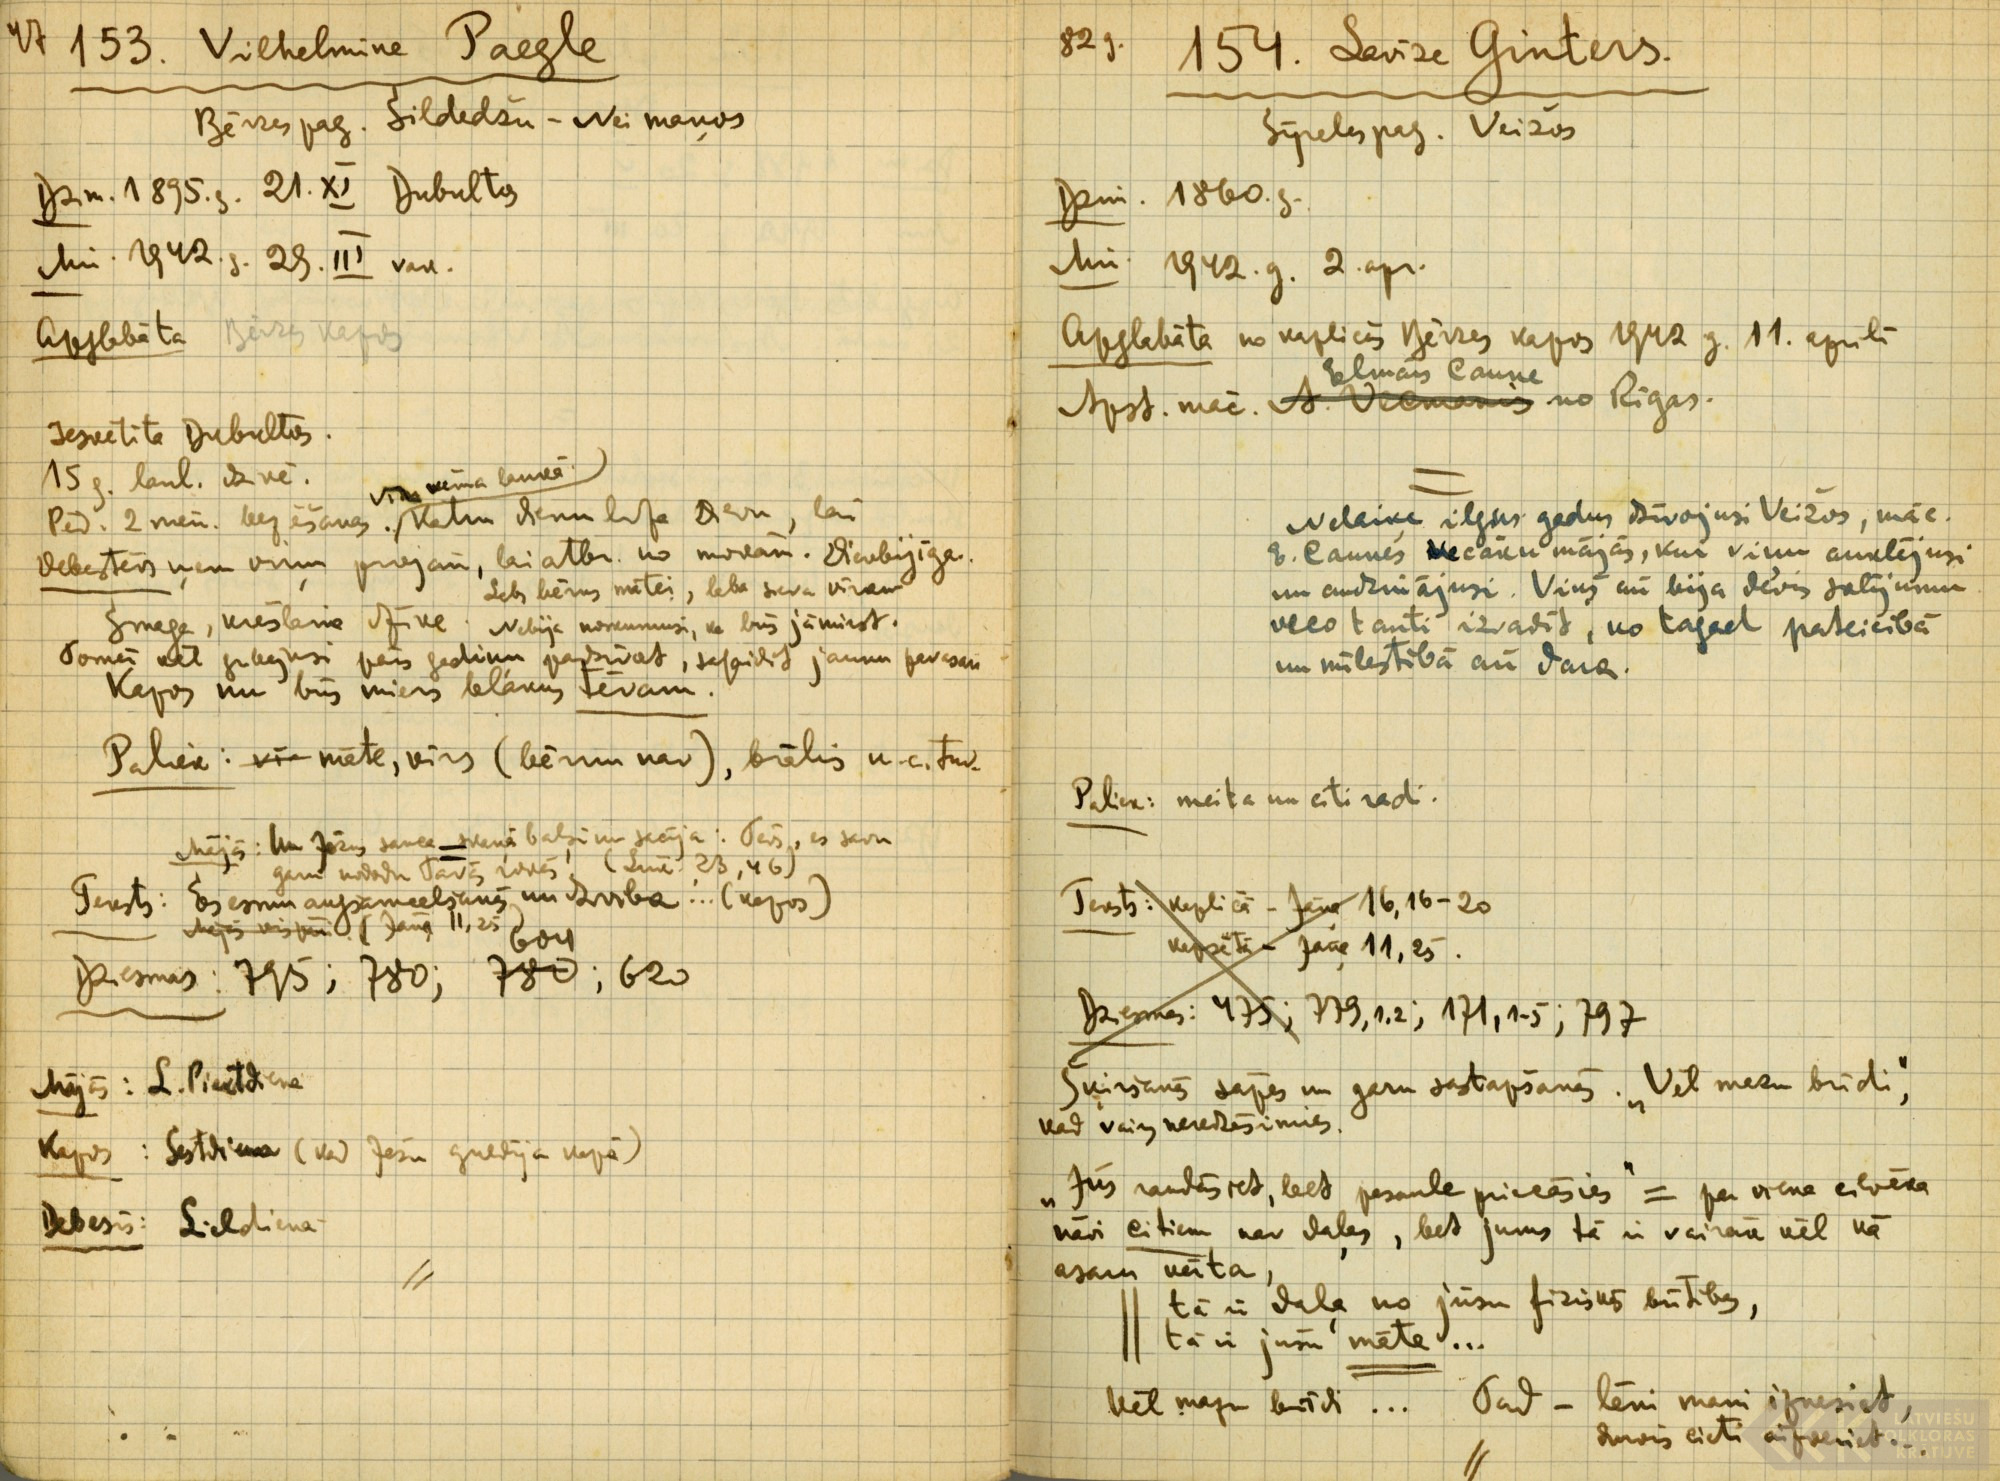 47 153. Vilhelmine Paegle
Bērzes pag. Sildedžu - Neimaņos
Dzim. 1895.g. 21.XI Dubultos
Mir. 1942.g. 29.III vak.
Apglabāta Bērzes kapos
Iesvētīta Dubultos.
15 g. laul. dzīvē.
vēma laukā
Pēd. 2 mēn. bez ēšanas. Katru dienu lūdza Dievu, lai
Debestēvs ņem viņu projām, lai atbr. no mokām. Dievbijīga.
Labs bērns mātei, laba sieva vīram
Smaga, krēslaina dzīve. Nebija norūkusi, ka būs jāmirst.
Tomēr vēl gribējusi pāris gadiņu padzīvot, sagaidīt jaunu pavasari
Kapos nu būs miers blakus tēvam.
Paliek: māte, vīrs (bērnu nav), brālis u.c. tuv.
Mājās: Un Jēzus sauca skaņā balsī un sacīja: Tēvs, es savu
garu nododu Tavās rokās (Lūk. 23,46)
Teksts: Es esmu augšāmcelšanās un dzīvība ... (kapos)
Mājās vispār. (Jāņa 11,25
604
Dziesmas: 795; 780; 780; 620
Mājās: L. Piektdiena
Kapos: Sestdiena (kad Jēzu guldīja kapā)
Debesīs: Lieldiena
82 g. 154. Lavīze Ginters.
Sīpeles pag. Veižos
Dzim. 1860.g.
Mir. 1942.g. 2.apr.
Apglabāta no kapličas Bērzes kapos 1942 g. 11. aprīlī
Elmārs Caune
Apst. māc. A. no Rīgas.
Nelaiķe ilgus gadus dzīvojusi Veižos, māc.
E. Caunes vecāku mājās, kur viņu auklējusi
un audzinājusi. Viņš arī bija devis solījumu
veco tanti izvadīt, ko tagad pateicībā
un mīlestībā arī dara.
Paliek: meita un citi radi.
Teksts: kapličā - Jāņa 16,16-20
kapsētā - Jāņa 11,25.
Dziesmas: 475; 779,1.2; 171,1-5; 797
Šķiršanās sāpes un garu sastapšanās. „Vēl mazu brīdi",
kad vairs neredzēsimies.
„Jūs raudāsiet, bet pasaule priecāsies" = par viena cilvēka
nāvi citiem nav daļas, bet jums tā ir vairāk vēl kā
asaru vērta,
tā ir daļa no jūsu fiziskās būtības,
tā ir jūsu māte ...
Vēl mazu brīdi ... Tad - lēni mani iznesiet,
durvis cieti aizveriet...
LATVIEŠU
FOLKLORAS
KRĀTUVE